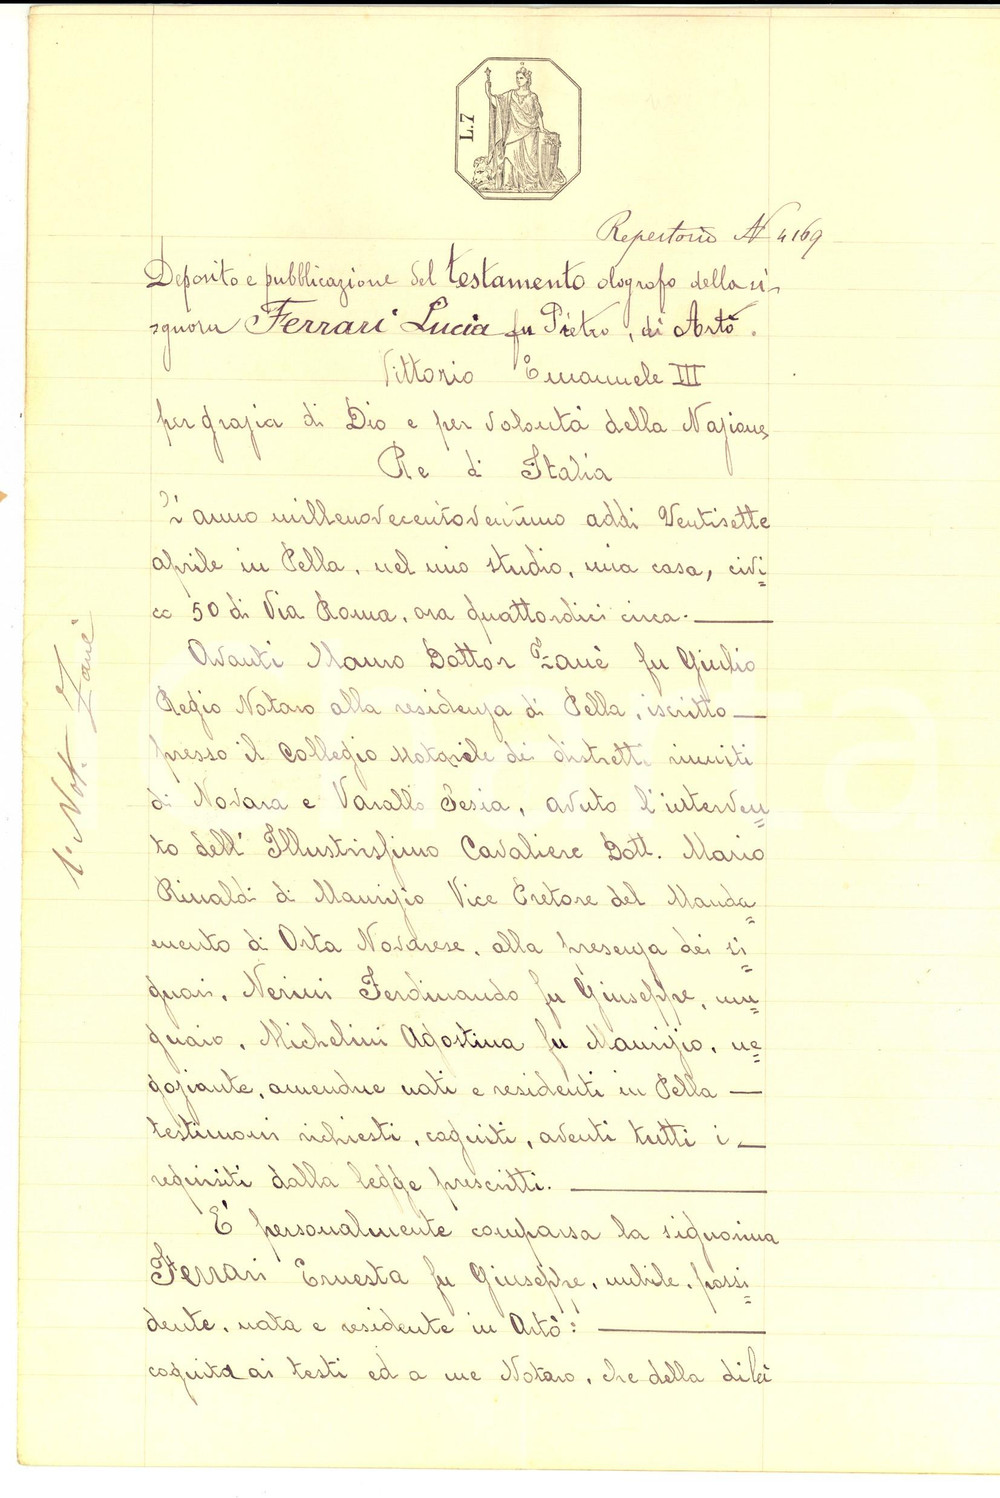 L.7
Repertorio N 4169
Deposito e pubblicazione del testamento olografo della si-
gnora Ferrari Lucia fu Pietro, di Artò.
Vittorio Emanuele III
per grazia di Dio e per volontà della Nazione
Re di Italia
L'anno millenovecentoventuno addi Ventisette
aprile in Pella, nel mio studio, mia casa, civi=
co 50 di Via Roma, ora quattordici circa.
Avanti Mauro Dottor Zanè fu Giulio
Regio Notaro alla residenza di Pella, iscritto
presso il Collegio Notarile dei distretti riuniti
di Novara e Varallo Sesia, avuto l'interven=
to dell' Illustrissimo Cavaliere Dott. Mario
Rinaldi di Maurizio Vice Pretore del Manda=
mento di Orta Novarese, alla presenza dei si=
gnori, Nerini Ferdinando fu Giuseppe, mu=
gnaio, Michelini Agostina fu Maurizio, ne=
goziante, amendue nati e residenti in Pella
testimoni richiesti, cogniti, aventi tutti i
requisiti dalla legge prescritti.
E' personalmente comparsa la signorina
Ferrari Ernesta fu Giuseppe, nubile, possi=
dente, nata e residente in Artò:
cognita ai testi ed a me Notaro, che della di lei
Not. Zanè